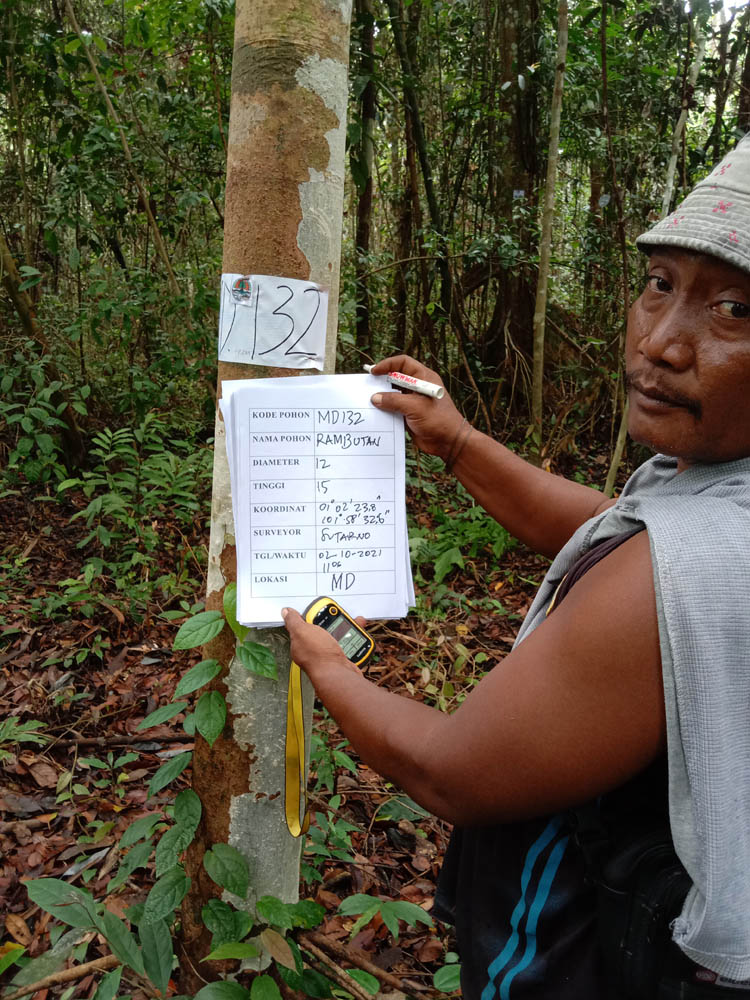 132
KODE POHON MD132
NAMA POHON RAMBUTAN
DIAMETER 12
TINGGI 15
KOORDINAT 01° 02' 23.8"
101° 58' 32,6"
SURVEYOR SUTARNO
TGL/WAKTU 02-10-2021
11⁰⁶
LOKASI MD